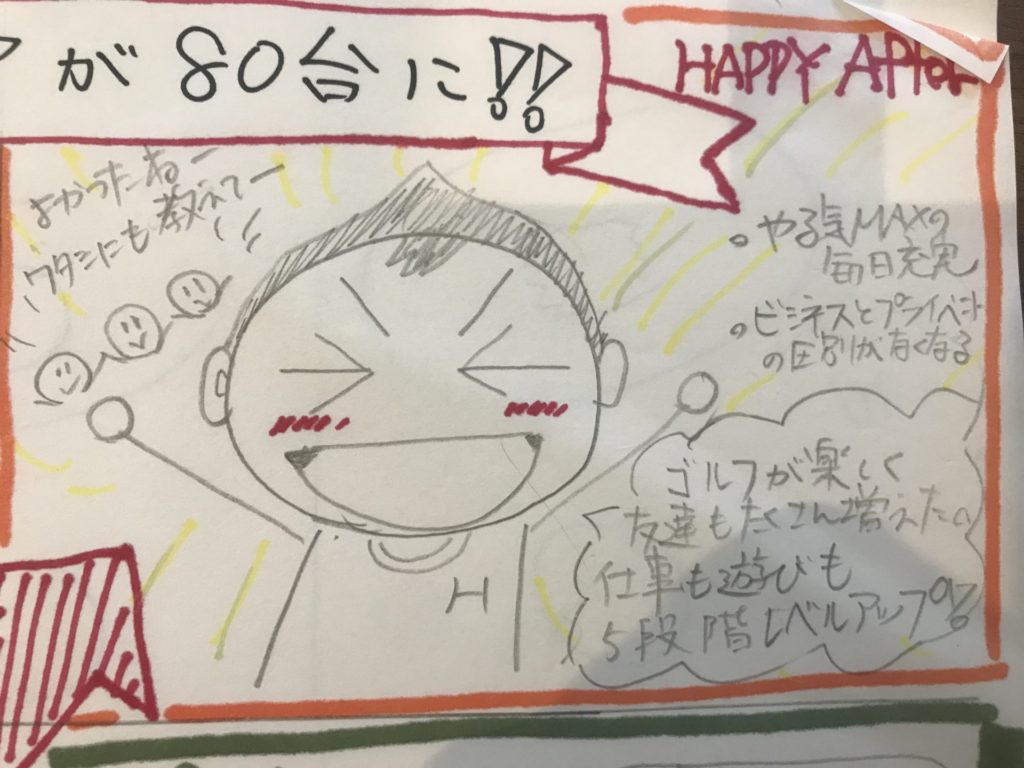 が80台に!!
HAPPY AFter
よかったねー
ワタシにも教えてー
・やる気MAXの
毎日充実
・ビジネスとプライベート
の区別が有くなる
ゴルフが楽しく
友達もたくさん増えた
仕事も遊びも
5段階レベルアップ
H